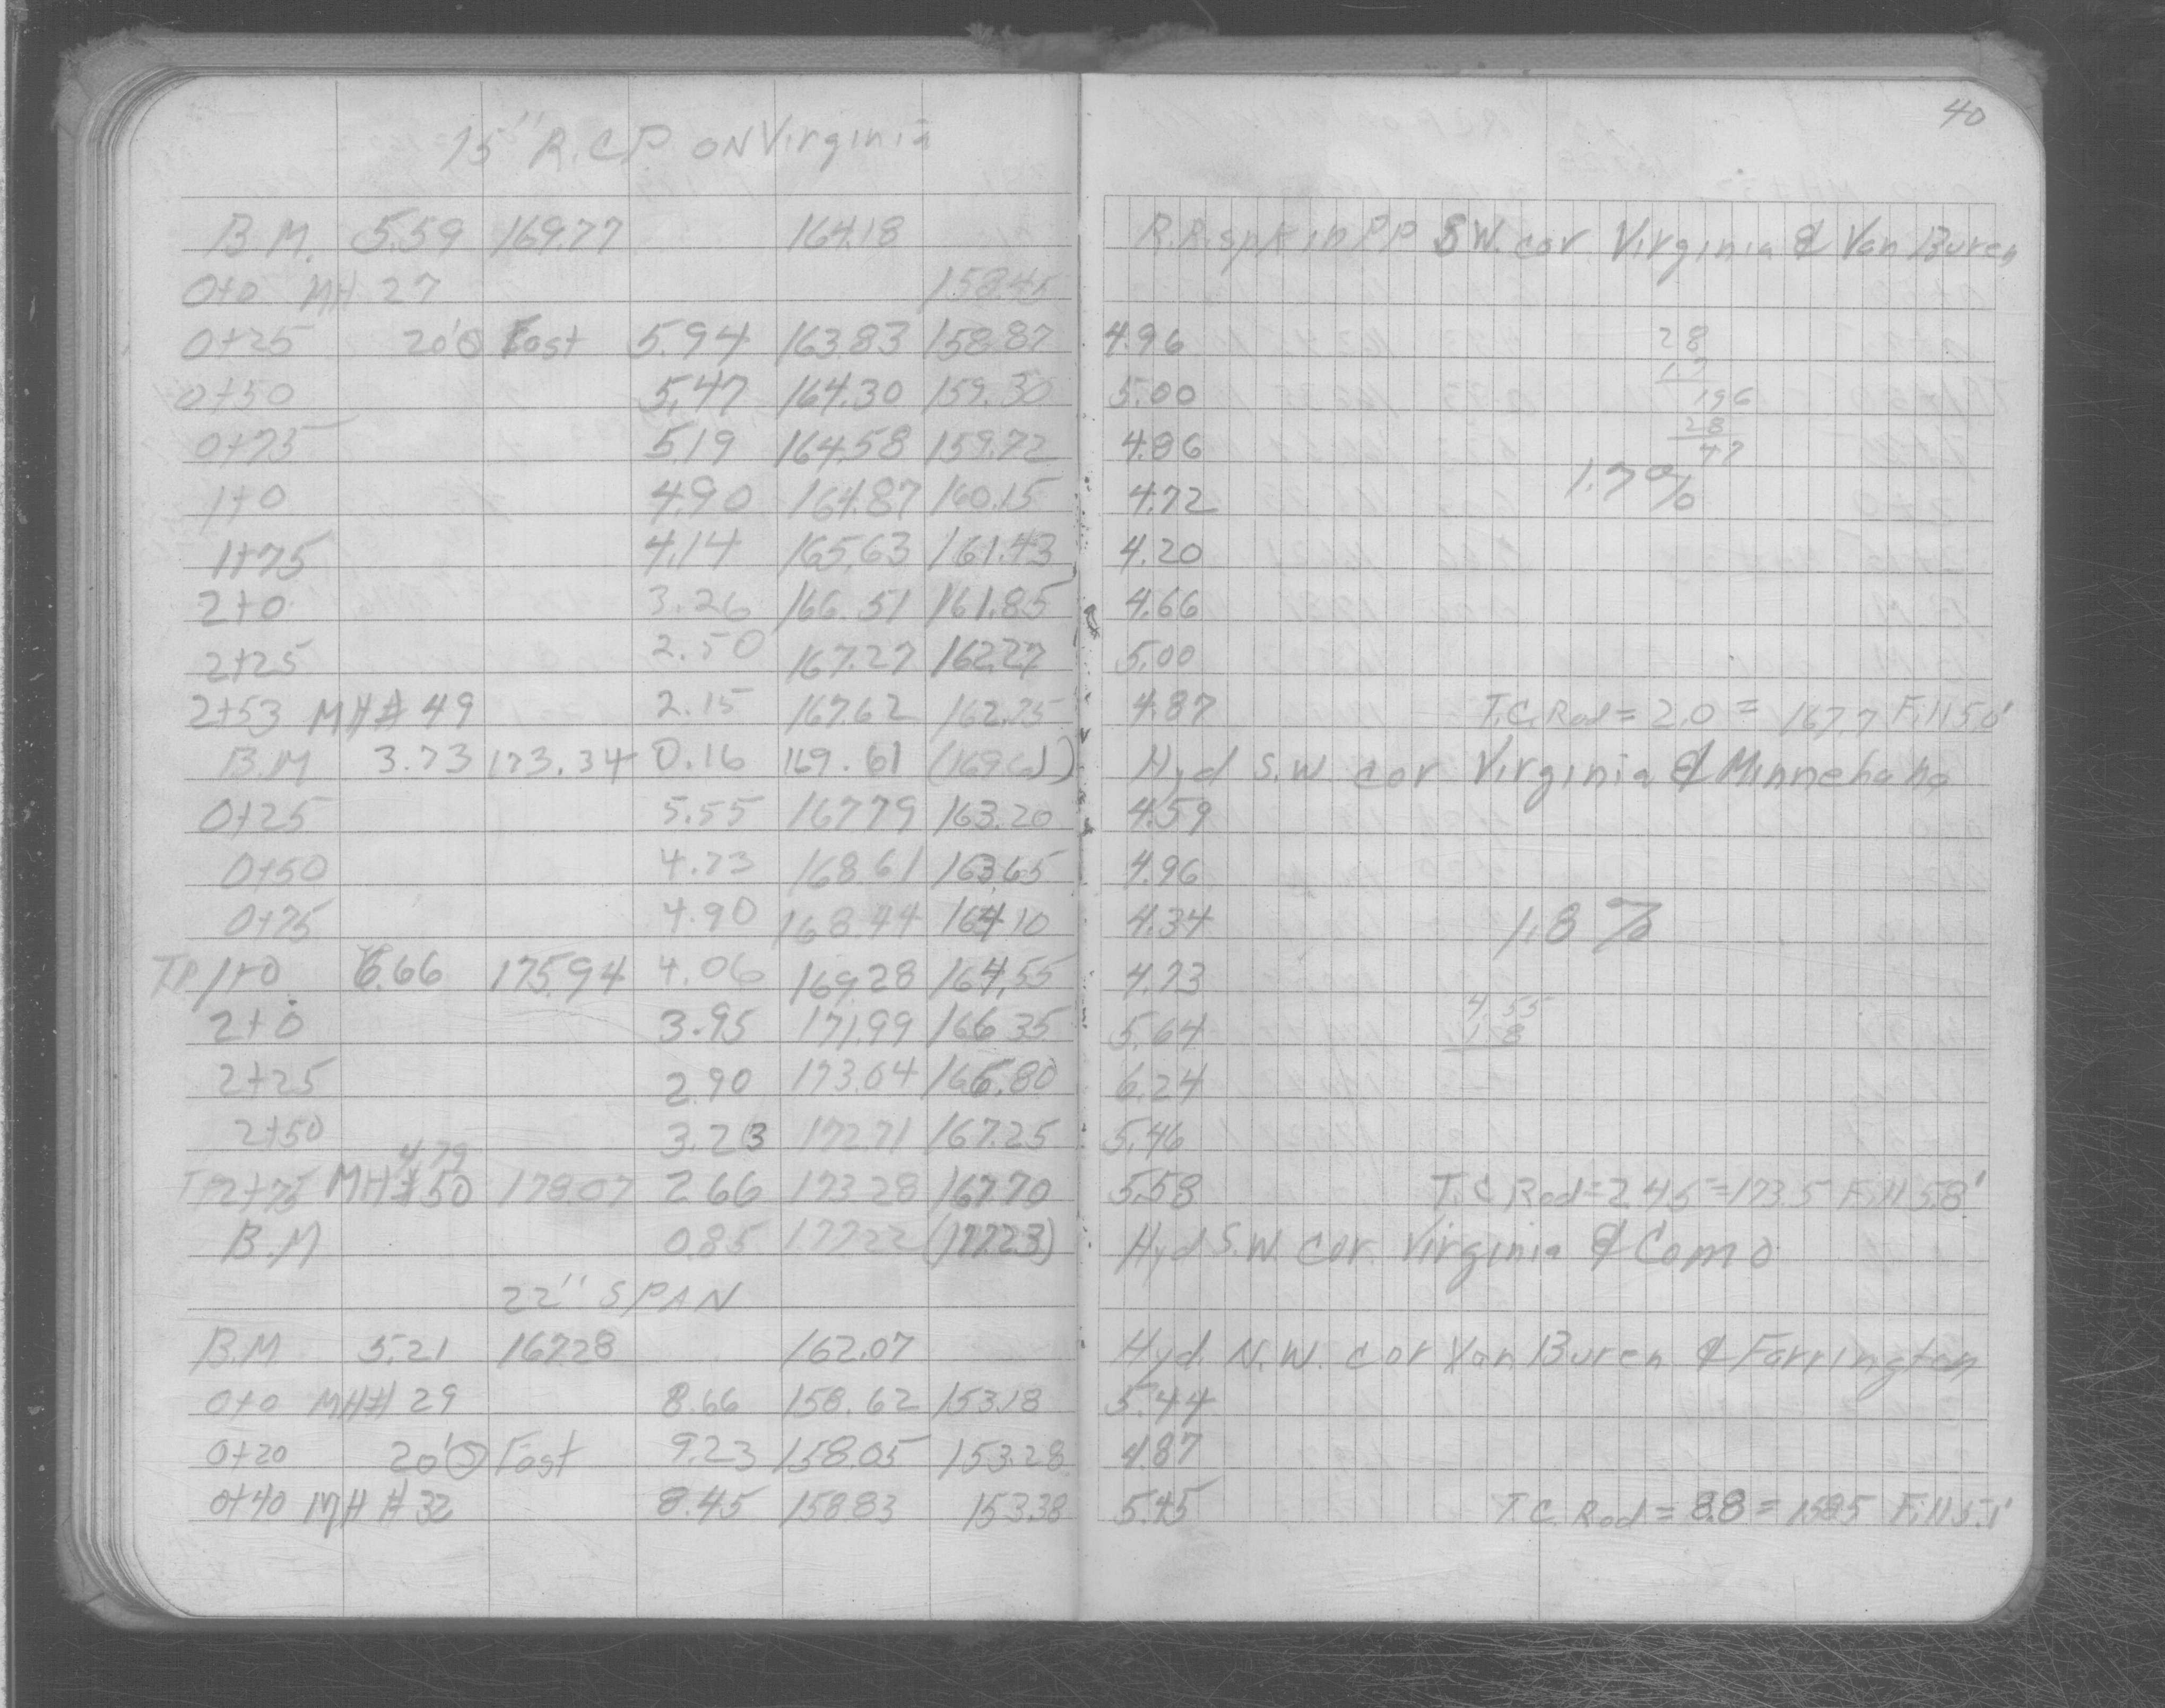 40
15" R.C.P. ON Virginia
B.M. 5.59 169.77 164.18 R.R. spk in PP S.W. cor. Virginia & Van Buren
0+0 MH 27 158.45
0+25 20'⊙ East 5.94 163.83 158.87 4.96 28
0+50 5.47 164.30 159.30 5.00 17 196
0+75 5.19 164.58 159.72 4.86 28 47
1+0 4.90 164.87 160.15 4.72 1.7%
1+75 4.14 165.63 161.43 4.20
2+0 3.26 166.51 161.85 4.66
2+25 2.50 167.27 162.27 5.00
2+53 MH# 49 2.15 167.62 162.75 4.87 T.C. Rod = 2.0 = 167.7 Fill 5.0'
B.M 3.73 173.34 0.16 169.61 (169.61) Hyd S.W. cor Virginia & Minnehaha
0+25 5.55 167.79 163.20 4.59
0+50 4.73 168.61 163.65 4.96
0+75 4.90 168.44 164.10 4.34 1.8%
T.P. 1+0 6.66 175.94 4.06 169.28 164.55 4.73
2+0 3.95 171.99 166.35 5.64 4.55 1.8
2+25 2.90 173.04 166.80 6.24
2+50 3.23 172.71 167.25 5.46
T.P. 2+75 MH#50 4.79 178.07 2.66 173.28 167.70 5.58 T.C Rod = 2.45 = 173.5 Fill 5.8'
B.M 0.85 177.22 (177.23) Hyd S.W. cor. Virginia & Como
22" SPAN
B.M 5.21 167.28 162.07 Hyd. N.W. cor Van Buren & Farrington
0+0 MH# 29 8.66 158.62 153.18 5.44
0+20 20'⊙ East 9.23 158.05 153.28 4.87
0+40 MH # 32 8.45 158.83 153.38 5.45 T.C. Rod = 8.8 = 158.5 Fill 5.1'